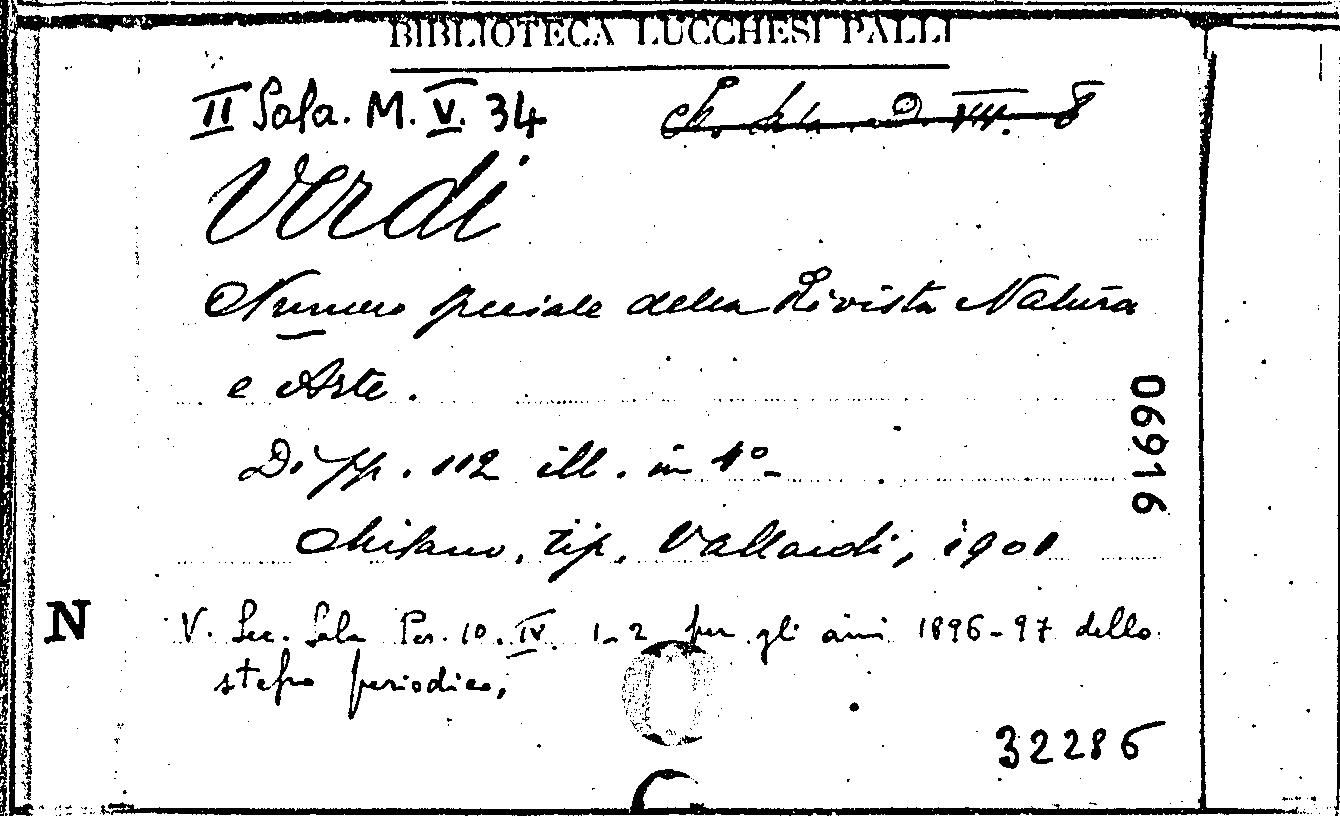 BIBLIOTECA LUCCHESI PALLI
II Sala. M. V. 34
Verdi
Numero speciale della Rivista Natura
e Arte.
Di pp. 112 ill. in 4°
Milano, tip. Vallardi, 1901
06916
N
V. Sec. Sala Per. 10. IV. 1-2 per gli anni 1896-97 dello
stesso periodico,
32286